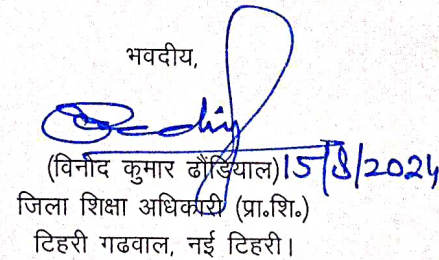 भवदीय,
(विनोद कुमार ढौंडियाल) 15/8/2024
जिला शिक्षा अधिकारी (प्रा०शि०)
टिहरी गढवाल, नई टिहरी।